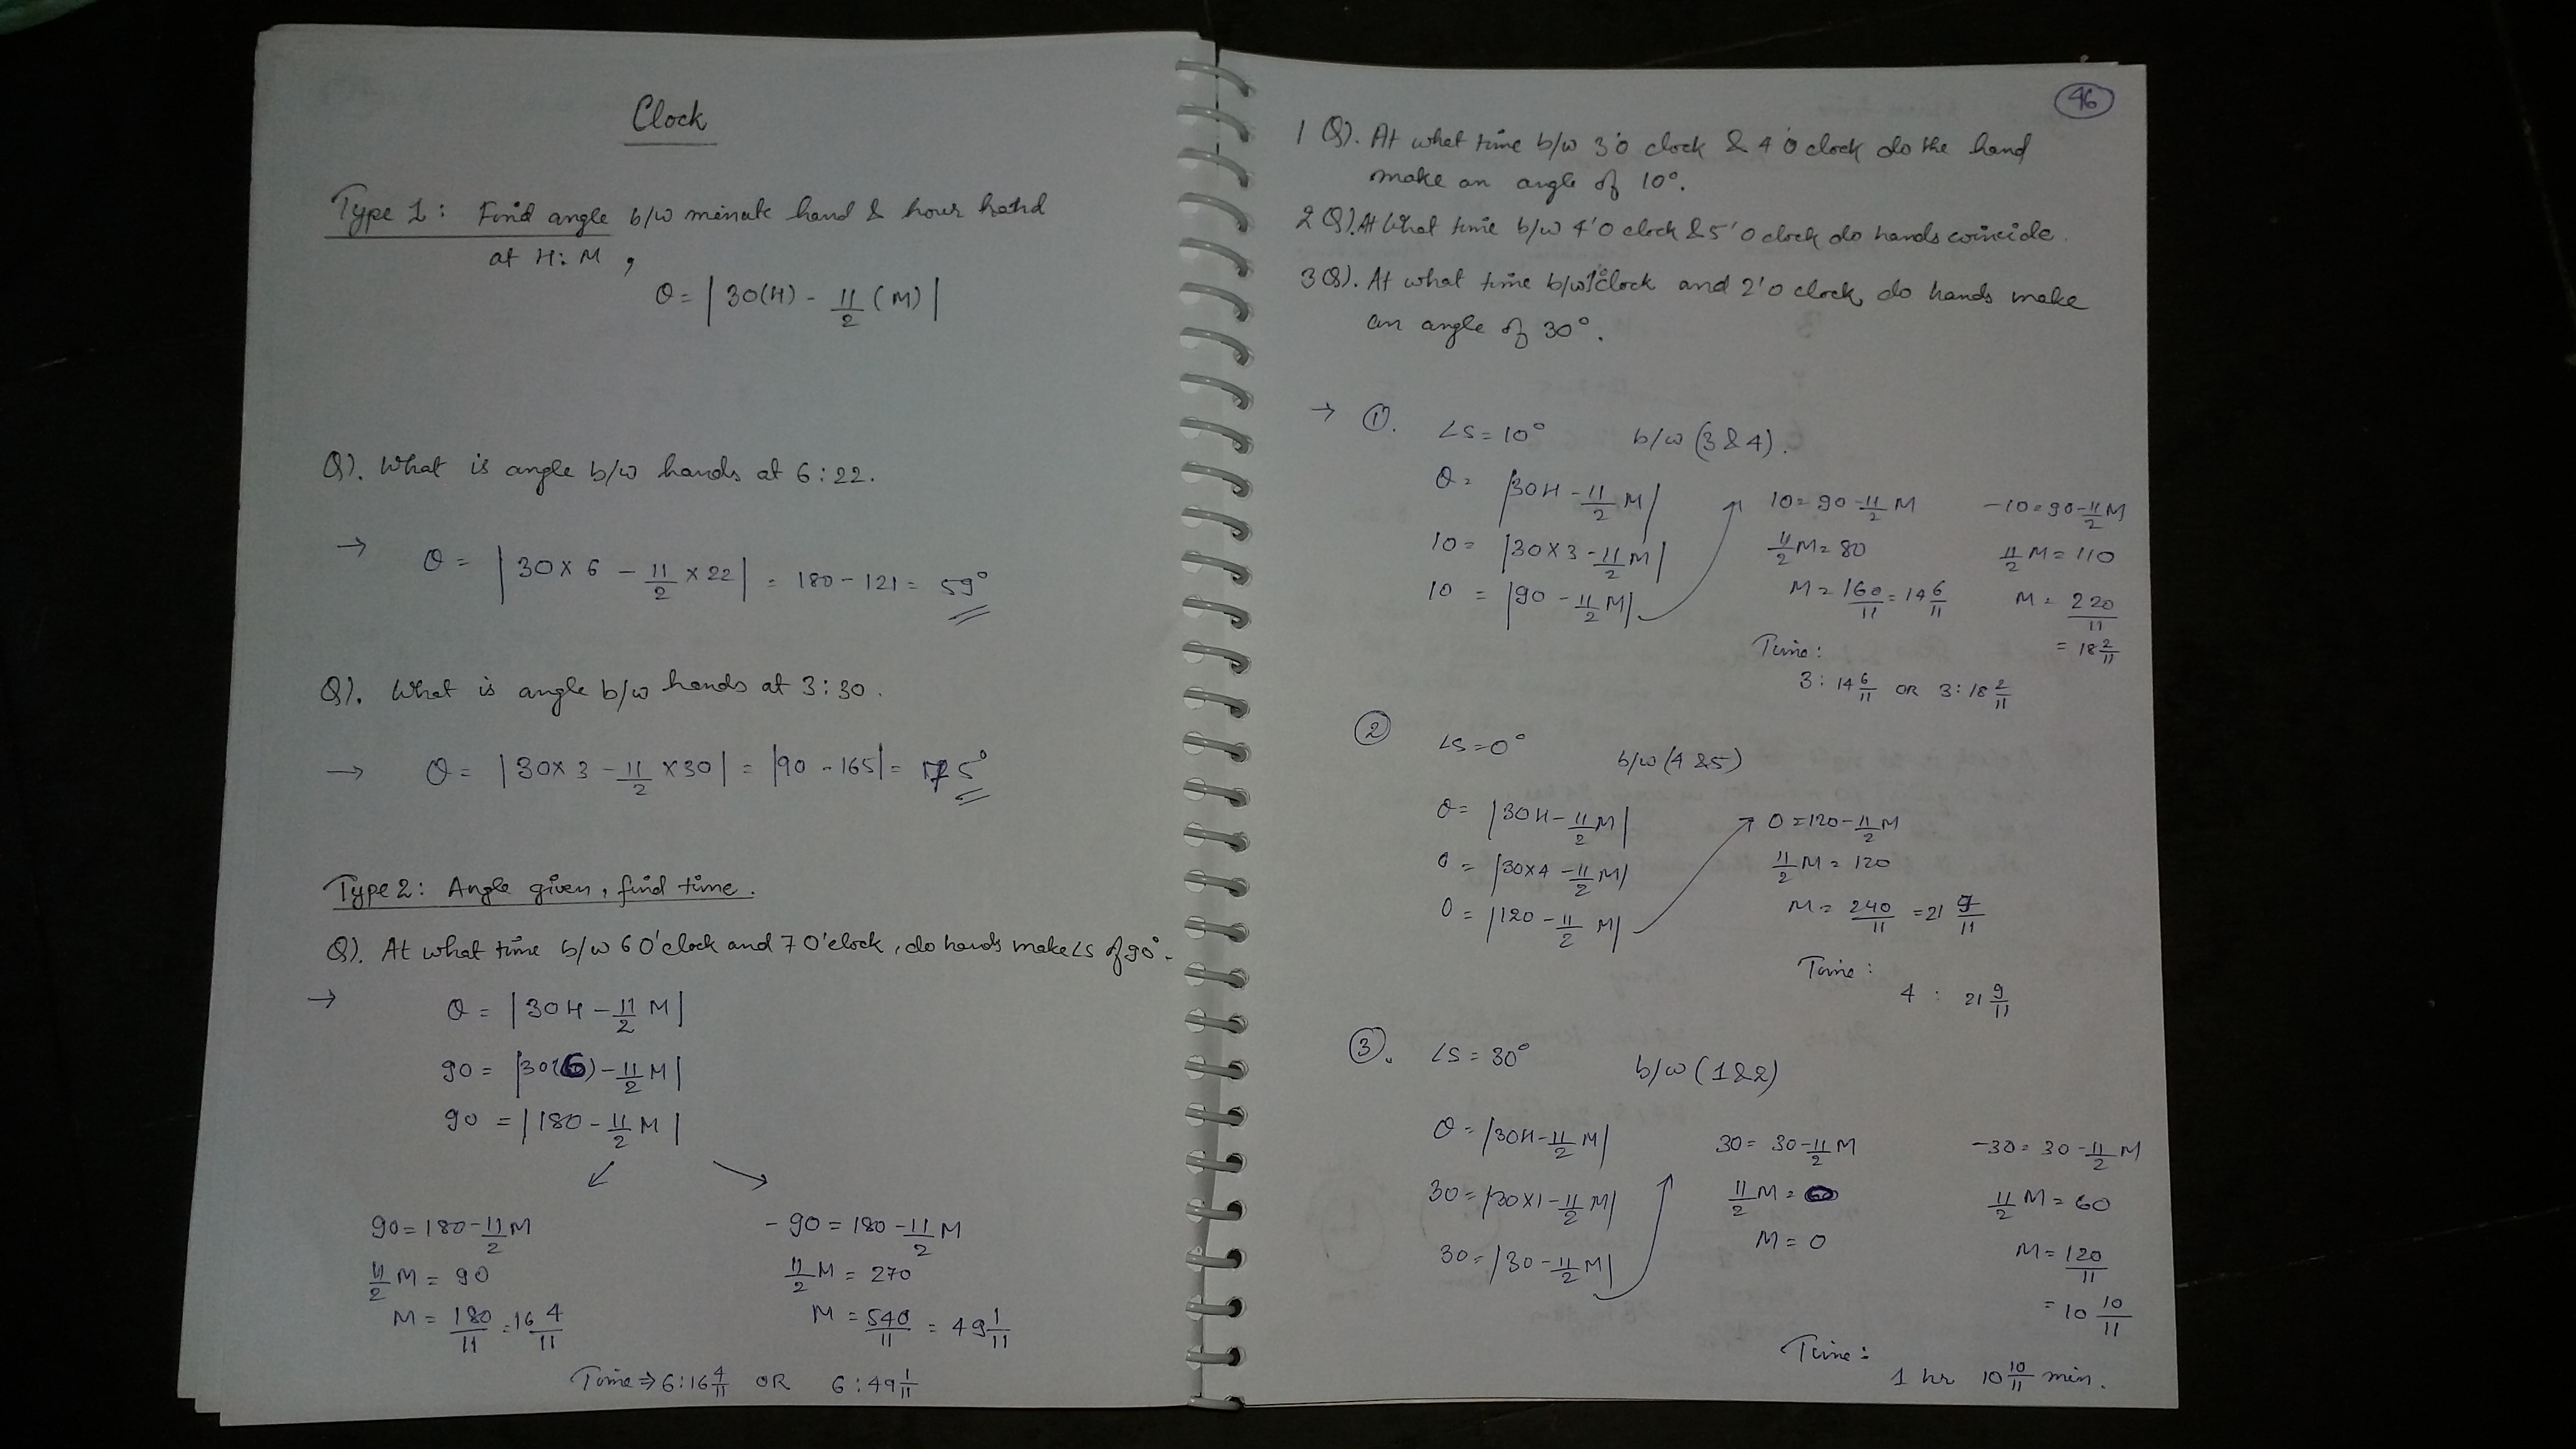 Clock
Type 1: Find angle b/w minute hand & hour hand
at H:M ,
θ = | 30(H) - 11/2 (M) |
Q). What is angle b/w hands at 6:22.
→ θ = | 30 x 6 - 11/2 x 22 | = 180 - 121 = 59°
Q). What is angle b/w hands at 3:30.
→ θ = | 30 x 3 - 11/2 x 30 | = |90 - 165| = 75°
Type 2: Angle given, find time.
Q). At what time b/w 6 O'clock and 7 O'clock, do hands make ∠s of 90°.
→ θ = | 30H - 11/2 M |
90 = |30(6) - 11/2 M |
90 = | 180 - 11/2 M |
↙ ↘
90 = 180 - 11/2 M
11/2 M = 90
M = 180/11 = 16 4/11
- 90 = 180 - 11/2 M
11/2 M = 270
M = 540/11 = 49 1/11
Time ⇒ 6:16 4/11 OR 6:49 1/11
46
1 Q). At what time b/w 3'o clock & 4'o clock do the hand
make an angle of 10°.
2 Q). At What time b/w 4'O clock & 5'O clock do hands coincide.
3 Q). At what time b/w 1'o clock and 2'o clock, do hands make
an angle of 30°.
→ ①. ∠s = 10° b/w (3 & 4).
θ = |30H - 11/2 M|
10 = |30 x 3 - 11/2 M|
10 = |90 - 11/2 M|
10 = 90 - 11/2 M
11/2 M = 80
M = 160/11 = 14 6/11
-10 = 90 - 11/2 M
11/2 M = 110
M = 220/11
= 18 2/11
Time:
3 : 14 6/11 OR 3 : 18 2/11
② ∠s = 0° b/w (4 & 5)
θ = |30H - 11/2 M|
0 = |30x4 - 11/2 M|
0 = |120 - 11/2 M|
0 = 120 - 11/2 M
11/2 M = 120
M = 240/11 = 21 9/11
Time :
4 : 21 9/11
③. ∠s = 30° b/w (1 & 2)
θ = |30H - 11/2 M|
30 = |30 x 1 - 11/2 M|
30 = |30 - 11/2 M|
30 = 30 - 11/2 M
11/2 M = 0
M = 0
-30 = 30 - 11/2 M
11/2 M = 60
M = 120/11
= 10 10/11
Time :
1 hr 10 10/11 min.